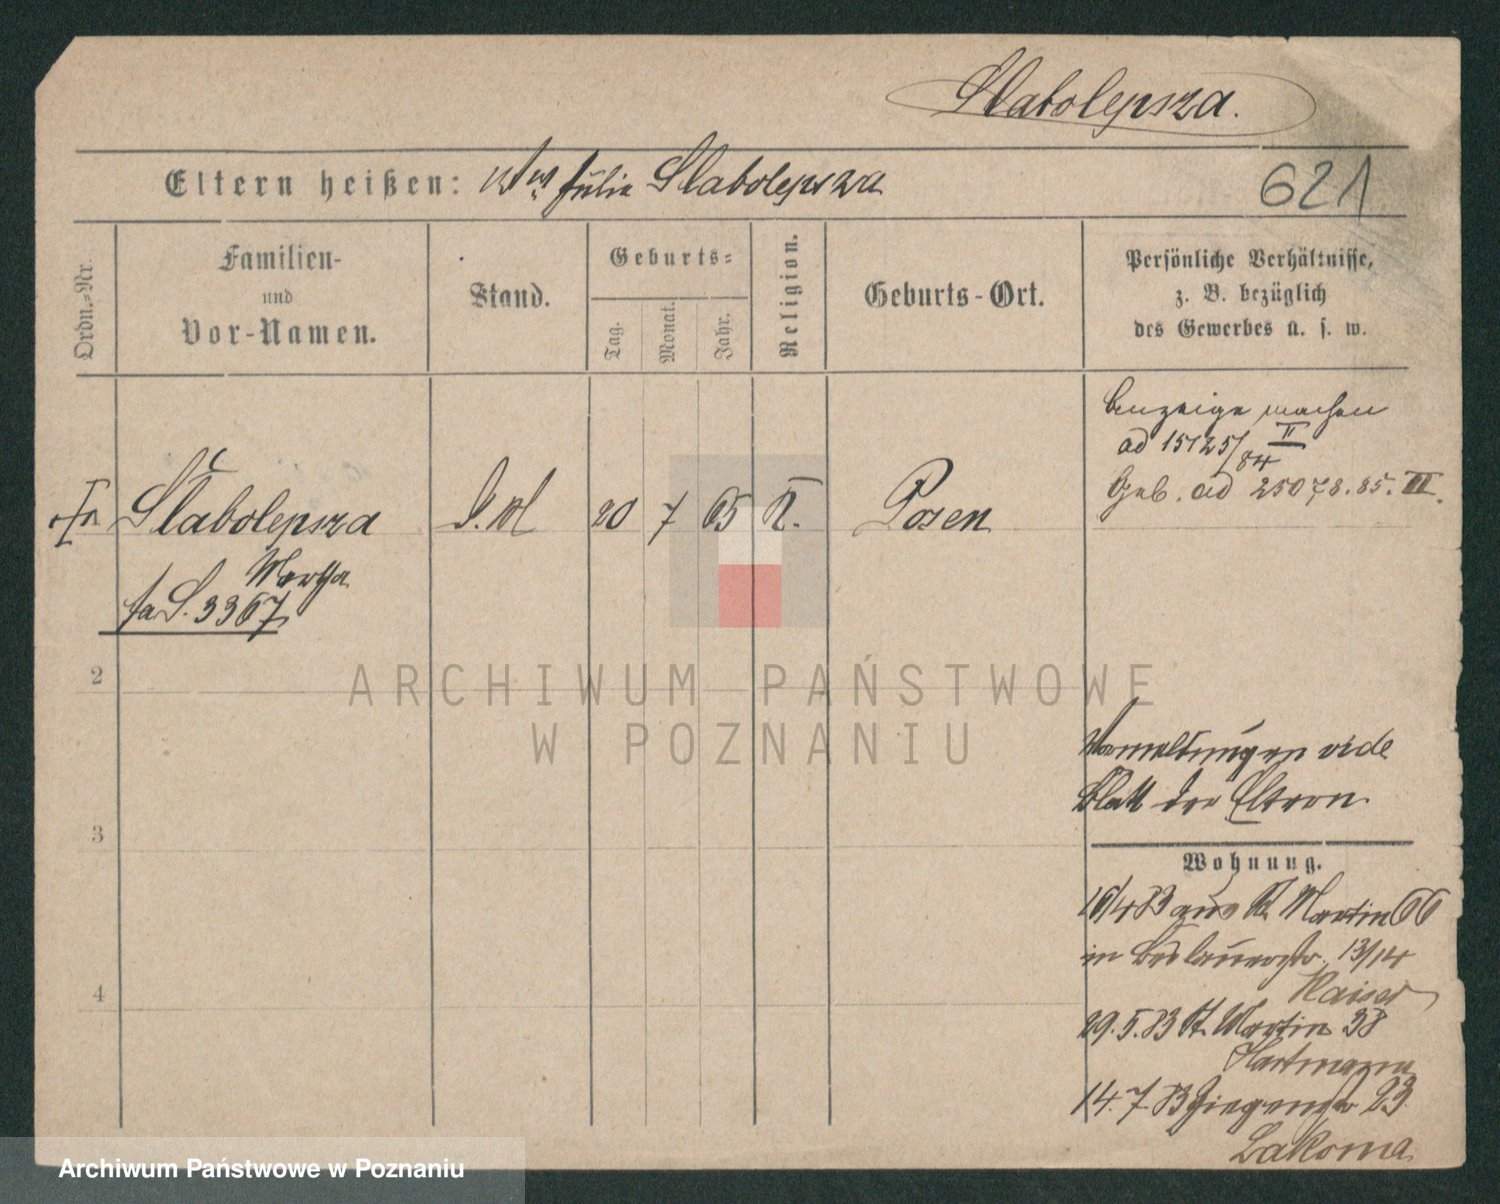 Slabolepsza.
Eltern heißen: Julie Slabolepsza
621
Ordn.-Nr.
Familien-
und
Vor-Namen.
Stand.
Geburts-
Tag.
Monat.
Jahr.
Religion.
Geburts-Ort.
Persönliche Verhältnisse,
z. B. bezüglich
des Gewerbes u. s. w.
Slabolepsza
Martha
fa S. 3367
20 7 65 K.
Posen
Anzeige machen
ad 15125/84 II
Geb. ad 25078.85. III.
2
3
4
Vermeldungen vide
Blatt der Eltern.
Wohnung.
16/4 83 aus St. Martin 66
in 13/14
Kaiser
29.5.83 St. Martin 38
Hartmann
14.7.83 Ziegenstr 23
Lakoma
ARCHIWUM PAŃSTWOWE
W POZNANIU
Archiwum Państwowe w Poznaniu